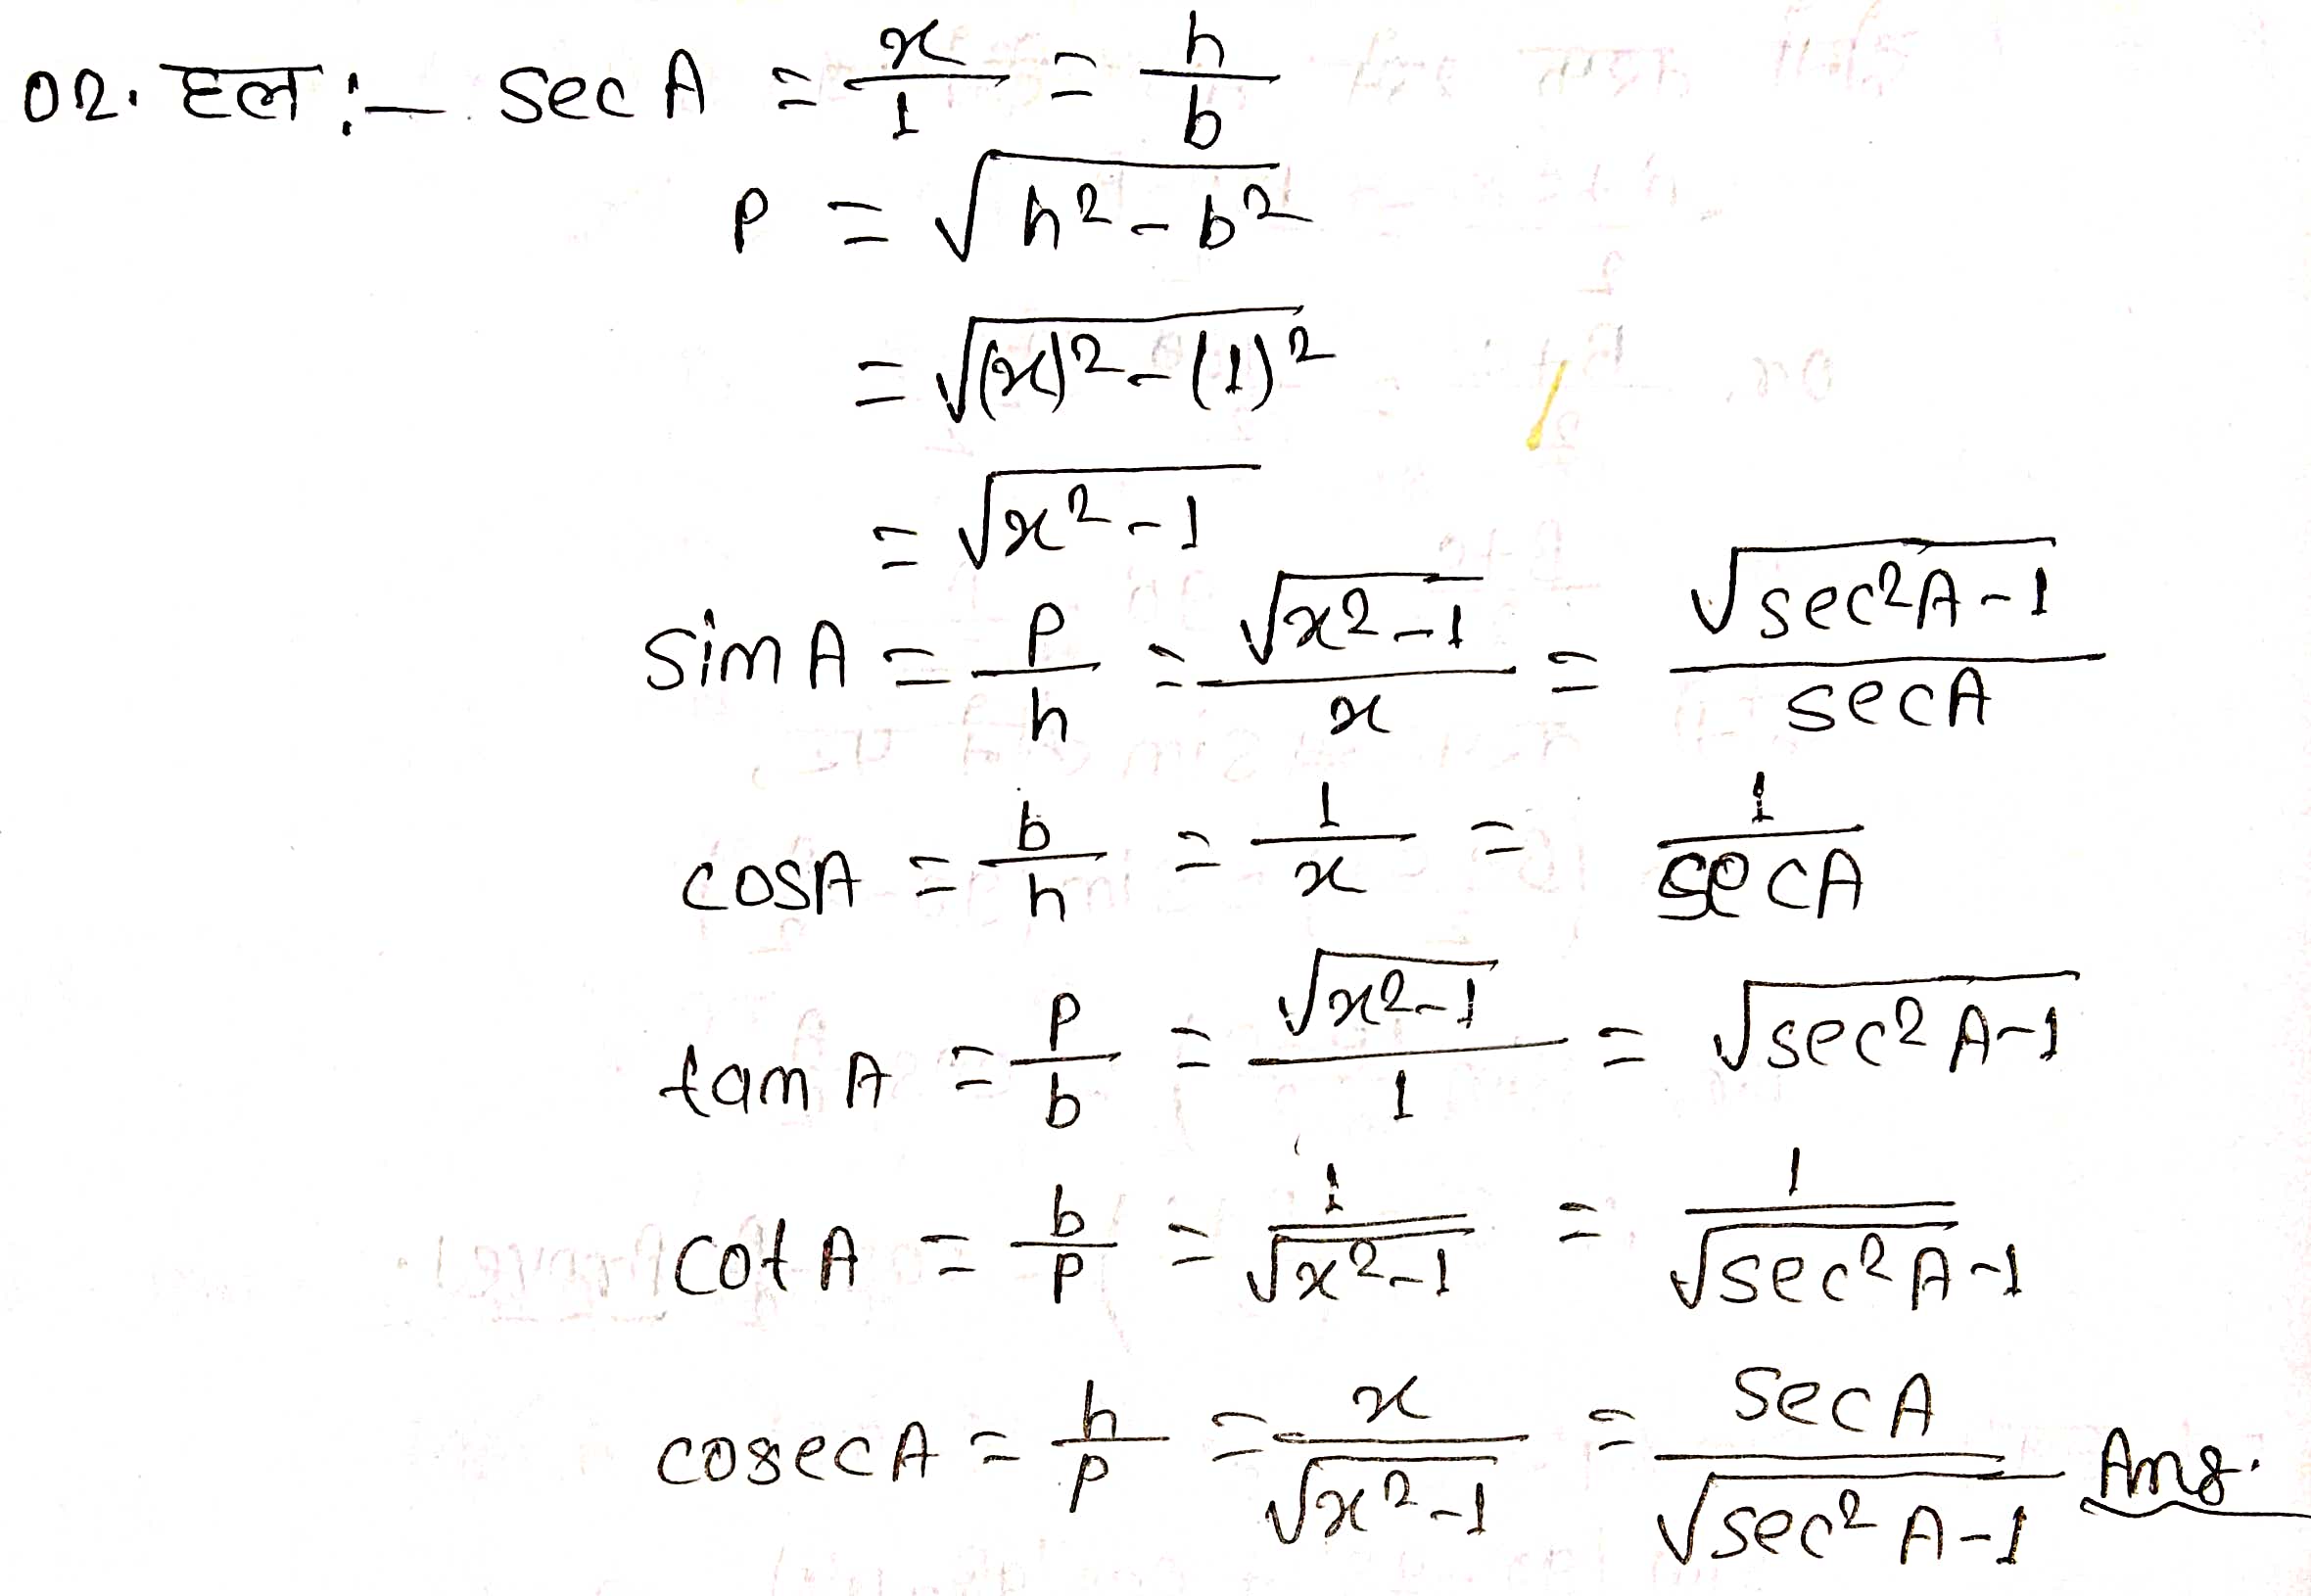 02. हल :- sec A = x/1 = h/b
P = √(h² - b²)
= √((x)² - (1)²)
= √(x² - 1)
sin A = P/h = √(x² - 1)/x = √(sec²A - 1)/secA
cosA = b/h = 1/x = 1/secA
tan A = P/b = √(x² - 1)/1 = √(sec²A - 1)
cot A = b/P = 1/√(x² - 1) = 1/√(sec²A - 1)
cosecA = h/P = x/√(x² - 1) = sec A/√(sec²A - 1) Ans.